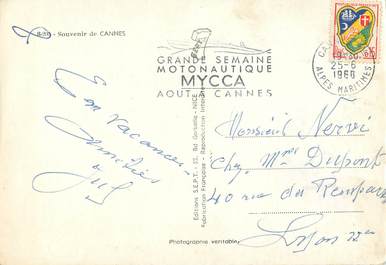 8-80 - Souvenir de CANNES
GRANDE SEMAINE
MOTONAUTIQUE
MYCCA
AOUT A CANNES
25-6
1960
ALPES MARITIMES
En vacances
Amitiés
Editions S.E.P.T. - Bd Gorbella - NICE
Fabrication Française - Reproduction Interdite
Photographie véritable
Monsieur Nervi
Chez Mme Dupont
40 rue du Rempart
Lyon